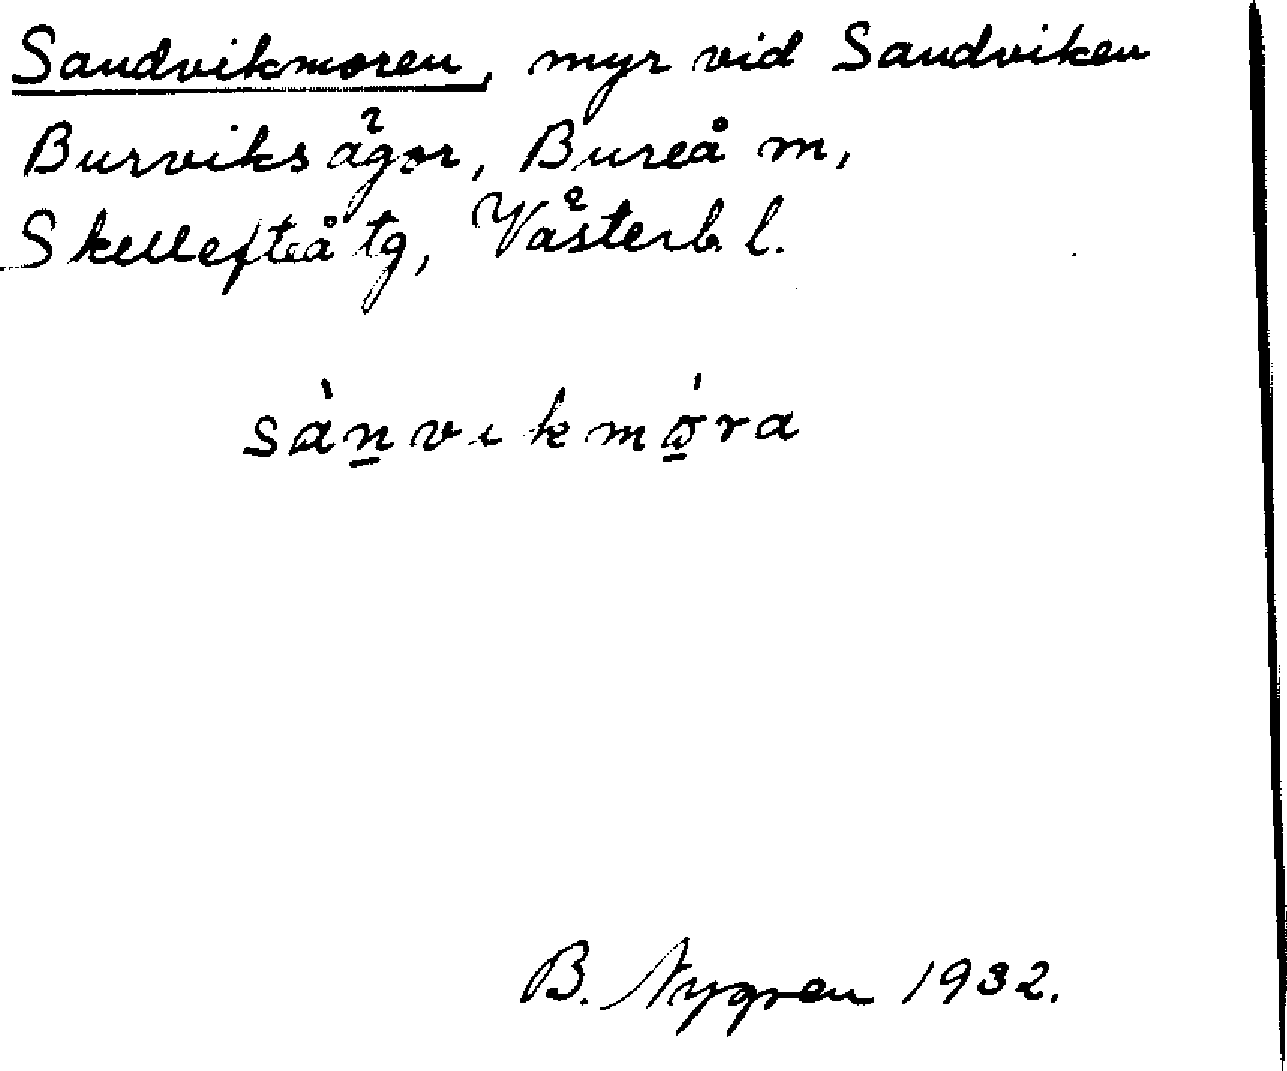 Sandvikmoren, myr vid Sandviken
Burviks ägor, Bureå m,
Skellefteå tg, Västerb. l.
sànvikmóra
B. Nygren 1932.